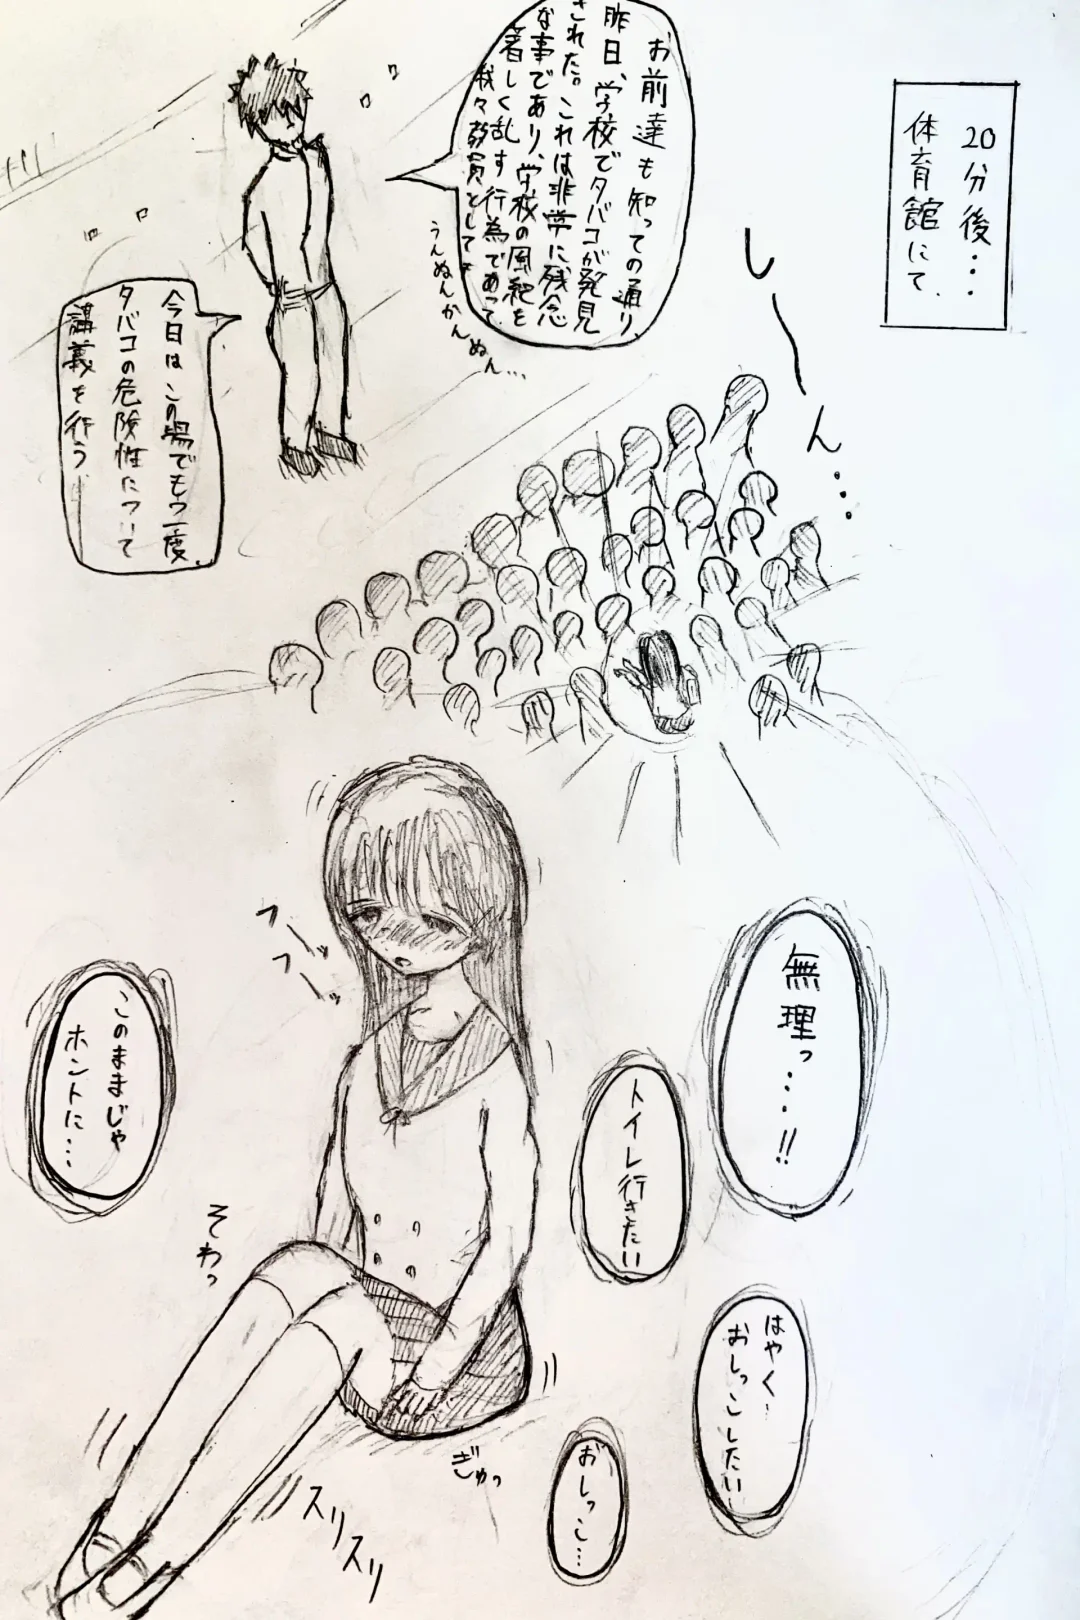 20分後…
体育館にて.
お前達も知っての通り
昨日、学校でタバコが発見
された。これは非常に残念
な事であり、学校の風紀を
著しく乱す行為であって
我々教員として
うんぬんかんぬん…
今日はこの場でもう一度、
タバコの危険性について
講義を行う
し〜ん…
フーッ
フーッ
無理っ…!!
トイレ行きたい
このままじゃ
ホントに…
そわっ
はやく…
おしっこしたい
おしっこ…
ぎゅっ
スリスリ